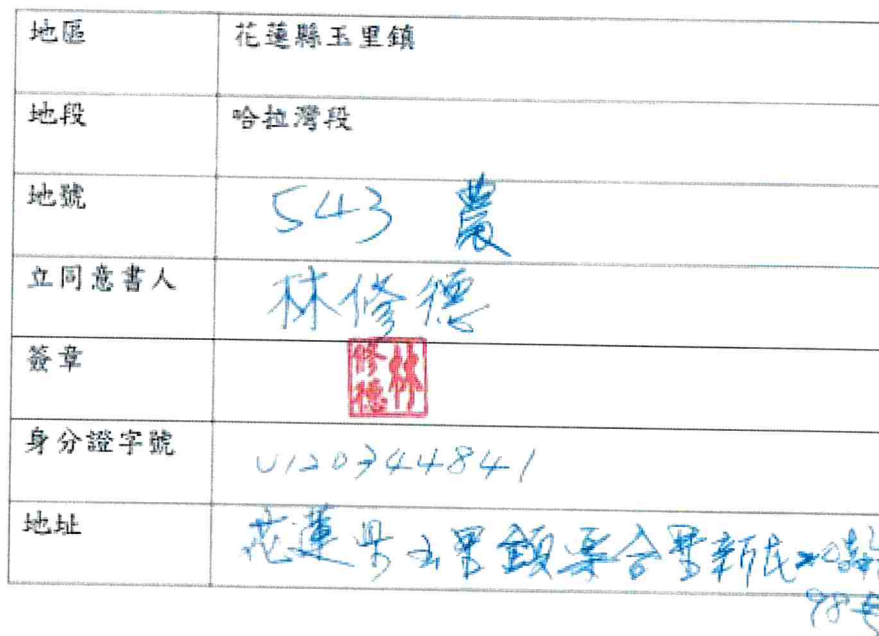 地區 花蓮縣玉里鎮
地段 哈拉灣段
地號 543 農
立同意書人 林修德
簽章 林修德
身分證字號 U120344841
地址 花蓮県玉里鎮 合里新民
98号